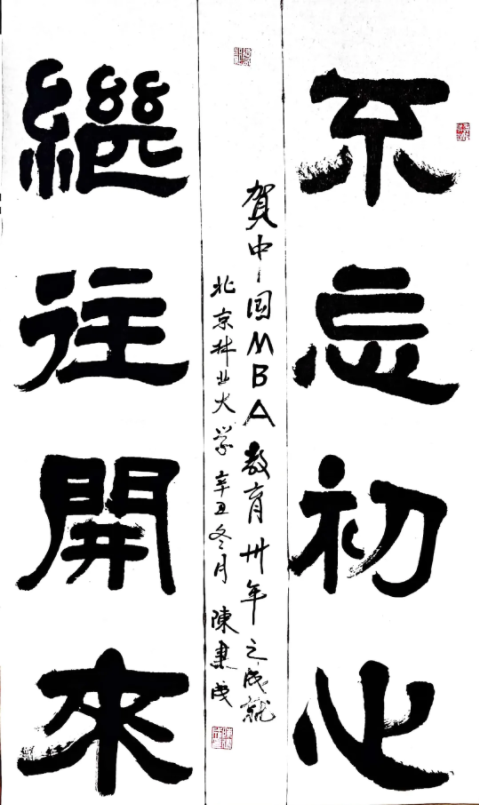 不忘初心
賀中国MBA教育卅年之成就
北京林业大学 辛丑冬月 陳建成
繼往開來